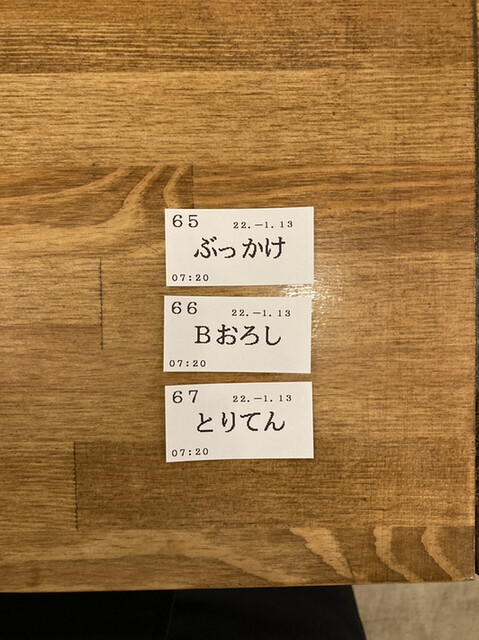 65 22.-1.13
ぶっかけ
07:20
66 22.-1.13
Bおろし
07:20
67 22.-1.13
とりてん
07:20